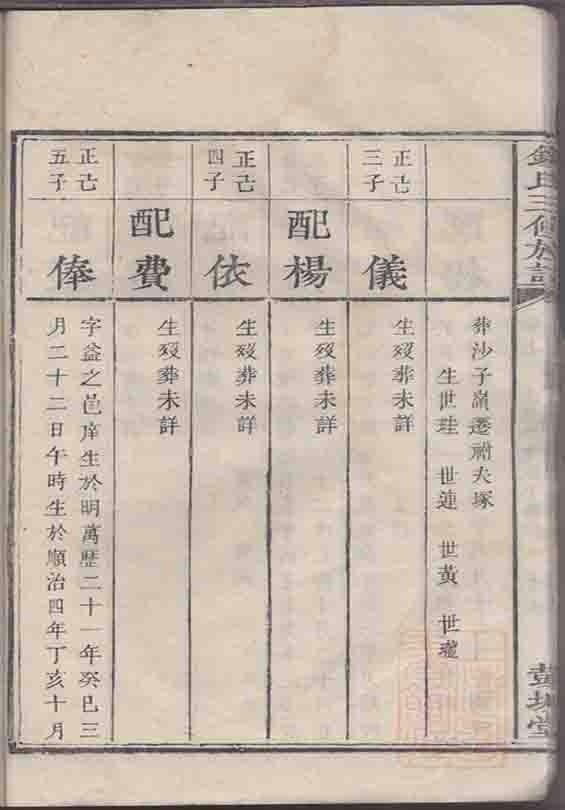 錢氏三修族譜
彭城堂
葬沙子嶺遷祔夫塚
生世珪 世連 世黃 世瓏
正己
三子
儀
生歿葬未詳
配楊
生歿葬未詳
正己
四子
依
生歿葬未詳
配費
生歿葬未詳
正己
五子
俸
字益之邑庠生於明萬歷二十一年癸巳三
月二十二日午時生於順治四年丁亥十月